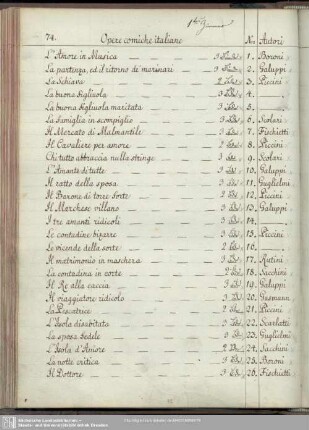 74. Opere comiche italiane No. Autori
L'Amore in Musica — 3 1. Boroni
La partenza, ed il ritorno de' marinari — 3 2. Galuppi
La Schiava — 2 3. Piccini
La buona figliuola — 3 4. —
La buona figliuola maritata — 3 5. —
La famiglia in scompiglio — 3 6. Scolari
Il Mercato di Malmantile — 3 7. Fischietti
Il Cavaliere per amore — 2 8. Piccini
Chi tutto abbraccia nulla stringe — 3 9. Scolari
L'Amante di tutte — 3 10. Galuppi
Il ratto della sposa — 3 11. Guglielmi
Il Barone di torre forte — 2 12. Piccini
Il Marchese villano — 3 13. Galuppi
I tre amanti ridicoli — 3 14. —
Le contadine bizarre — 3 15. Piccini
Le vicende della sorte — 2 16. —
Il matrimonio in maschera — 3 17. Rutini
La contadina in corte — 2 18. Sacchini
Il Re alla caccia — 3 19. Galuppi
Il viaggiatore ridicolo — 3 20. Gasmann
La Pescatrice — 2 21. Piccini
L'Isola disabitata — 3 22. Scarlatti
La sposa fedele — 3 23. Guglielmi
L'Isola d'Amore — 2 24. Sacchini
La notte critica — 3 25. Boroni
Il Dottore — 3 26. Fischietti